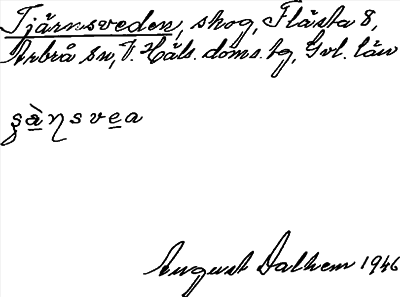 Tjärnsveden, skog, Flästa 8,
Arbrå sn, V. Häls. doms. tg, Gvl. län
ʂä̀ŋsvea
August Dalhem 1946